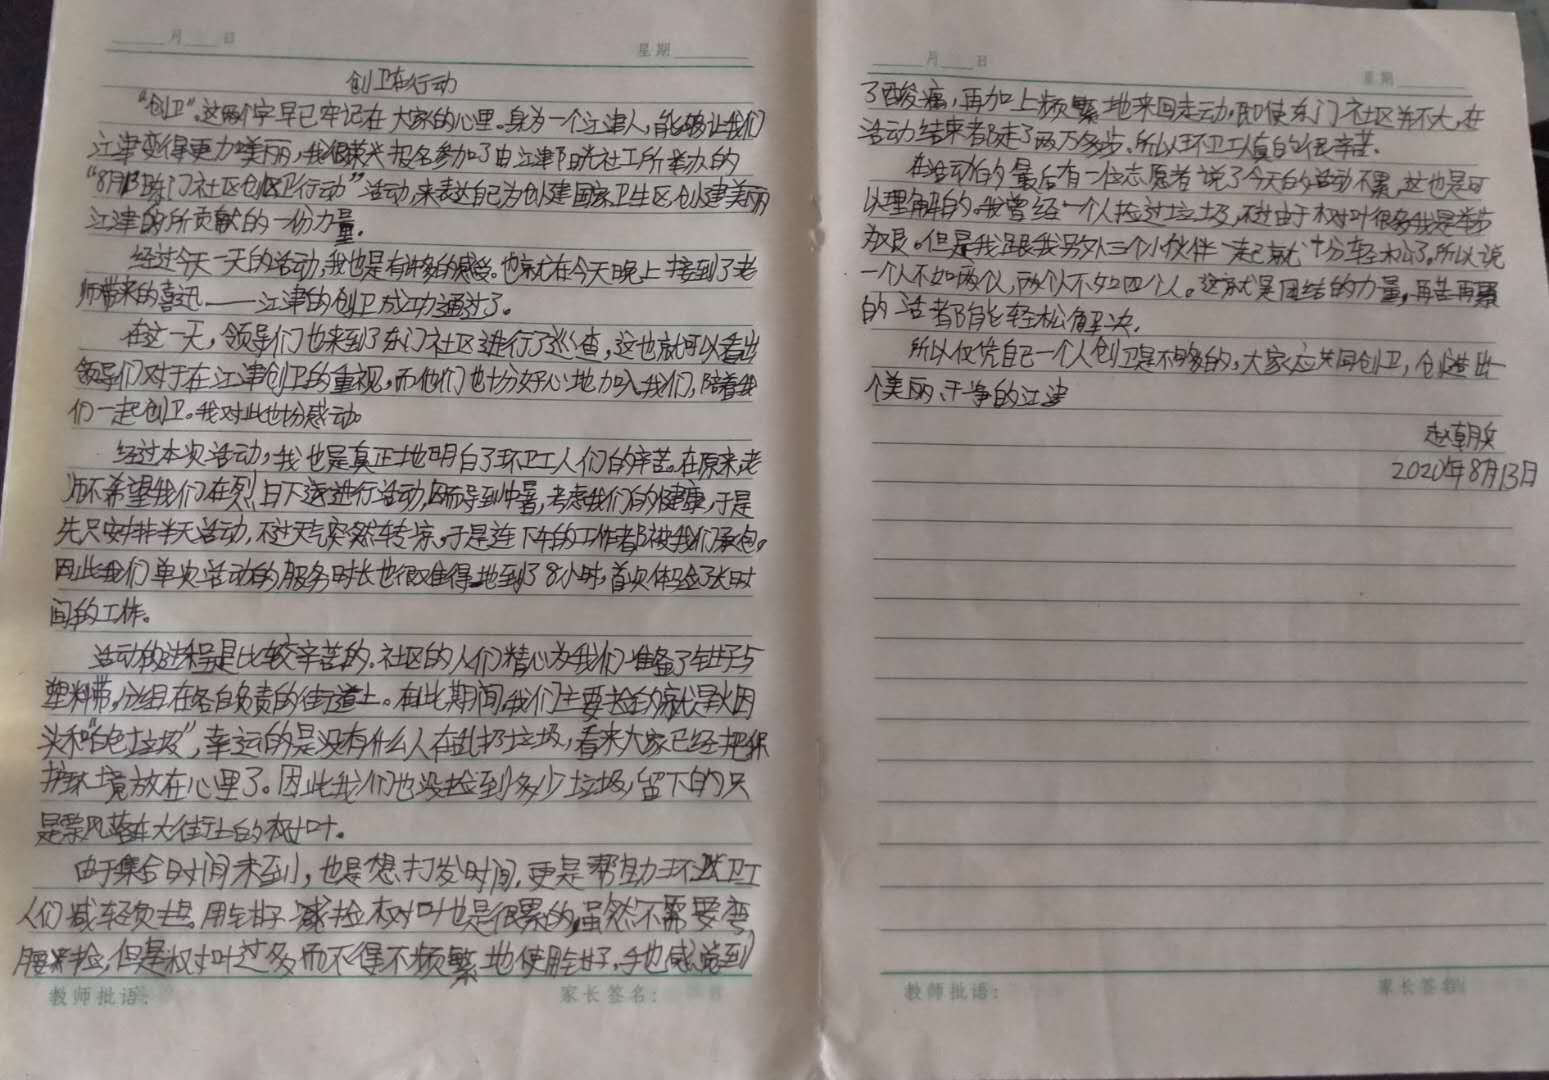 月 日
星期
创卫在行动
“创卫”这两个字早已牢记在大家的心里。身为一个江津人,能够让我们
江津变得更加美丽,我很荣兴报名参加了由江津阳光社工所举办的
“8月13东门社区创卫行动”活动,来表达自己为创建国家卫生区,创建美丽
江津的所贡献的一份力量。
经过今天一天的活动,我也是有许多的感受。也就在今天晚上接到了老
师带来的喜讯——江津的创卫成功通过了。
在这一天,领导们也来到了东门社区进行了巡查,这也就可以看出
领导们对于在江津创卫的重视,而他们也十分好心地加入我们,陪着我
们一起创卫。我对此也十分感动
经过本次活动,我也是真正地明白了环卫工人们的辛苦。在原来,老
师不希望我们在烈日下逐进行活动,因而导到中暑,考虑我们的健康,于是
先只安排半天活动,不过天气突然转凉,于是连下午的工作都被我们承包。
因此我们单次活动的服务时长也很难得地到了8小时,首次体验了长时
间的工作。
活动的进程是比较辛苦的,社区的人们精心为我们准备了钳子与
塑料带,分组在各自负责的街道上。在此期间,我们主要捡的就是火因
头和“白色垃圾”,幸运的是没有什么人在乱扔垃圾,看来大家已经把保
护环境放在心里了。因此我们也没捡到多少垃圾,留下的只
是票风落在大街上的树叶。
由于集合时间未到,也是想打发时间,更是帮助环卫工
人们减轻负担。用钳子捡树叶也是很累的,虽然不需要弯
腰来捡,但是树叶过多而不得不频繁地使用钳子,手也感觉到
教师批语:
家长签名:
月 日
星期
了酸痛,再加上频繁地来回走动,即使东门社区并不大,在
活动结束都走了两万多步。所以环卫工人真的很辛苦。
在活动的最后有一位志愿者说了今天的活动不累,这也是可
以理解的。我曾经一个人捡过垃圾,不过由于树叶很多我是举步
放艮。但是我跟我另外三个小伙伴一起就十分轻松了。所以说
一个人不如两个人,两个人不如四个人。这就是团结的力量,再苦再累
的活都能轻松解决。
所以仅凭自己一个人创卫是不够的,大家应共同创卫,创造出一
个美丽、干净的江津
赵朝兵
2020年8月13日
教师批语:
家长签名